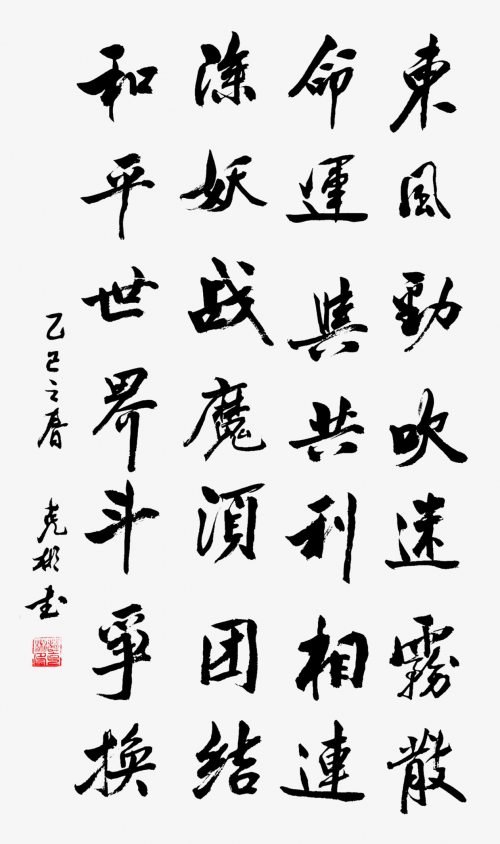 東風勁吹迷霧散
命運與共利相連
除妖战魔須团结
和平世界斗爭换
乙巳之春 克彬书